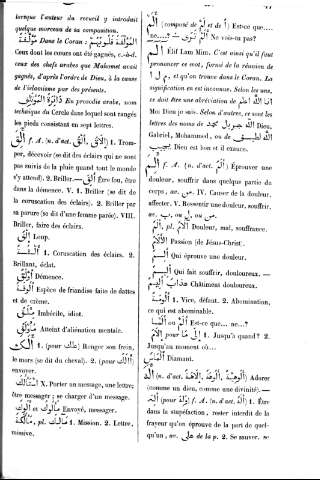 lorsque l'auteur du recueil y introduit
quelque morceau de sa composition.
المؤلفة قلوبهم Dans le Coran : مؤلفة
Ceux dont les cœurs ont été gagnés, c.-à-d.
ceux des chefs arabes que Mahomet avait
gagnés, d'après l'ordre de Dieu, à la cause
de l'islamisme par des présents.
دائرة المؤتلف En prosodie arabe, nom
technique du Cercle dans lequel sont rangés
les pieds consistant en sept lettres.
ألق f. A. (n. d'act. ألق) 1. Trom-
per, décevoir (se dit des éclairs qui ne sont
pas suivis de la pluie quand tout le monde
s'y attend). 2. Briller. — ألق Être fou, être
dans la démence. V. 1. Briller (se dit de
la coruscation des éclairs). 2. Briller par
sa parure (se dit d'une femme parée). VIII.
Briller, faire des éclairs.
Loup.
1. Coruscation des éclairs. 2.
Brillant, éclat.
Démence.
Espèce de friandise faite de dattes
et de crème.
Imbécile, idiot.
Atteint d'aliénation mentale.
1. (pour علك) Ronger son frein,
le mors (se dit du cheval). 2. (pour ألاك)
envoyer.
X. Porter un message, une lettre;
être messager; se charger d'un message.
Envoyé, messager.
pl. 1. Mission. 2. Lettre,
missive.
ألم (composé de لم et de أ) Est-ce que....
ne....? — ألم ترى Ne vois-tu pas?
الم Élif Lam Mim. C'est ainsi qu'il faut
prononcer ce mot, formé de la réunion de
ا ل م, et qu'on trouve dans le Coran. La
signification en est inconnue. Selon les uns,
ce doit être une abréviation de انا الله اعلم
Moi Dieu je sais. Selon d'autres, ce sont les
lettres des noms de الله جبريل محمد Dieu,
Gabriel, Mohammed, ou de الله لطيف
مجيد Dieu est bon et il exauce.
ألم f. A. (n. d'act. ألم) Éprouver une
douleur, souffrir dans quelque partie du
corps, ac. من. IV. Causer de la douleur,
affecter. V. Ressentir une douleur, souffrir,
ac. ب, ou ل, ou من.
ألم, pl. آلام Douleur, mal, souffrance.
الآلام Passion (de Jésus-Christ).
ألم Qui éprouve une douleur.
أليم Qui fait souffrir, douloureux. —
عذاب أليم Châtiment douloureux.
1. Vice, défaut. 2. Abomination,
ce qui est abominable.
ألما ou ألم Est-ce que... ne...?
إلام (pour إلى ما) 1. Jusqu'à quand? 2.
Jusqu'au moment où...
ألماس Diamant.
أله (n. d'act. إلاهة, ألوهة, ألوهية) Adorer
(comme un dieu, comme une divinité). —
أله (pour وله) f. A. (n. d'act. أله) 1. Être
dans la stupéfaction, rester interdit de la
frayeur qu'on éprouve de la part de quel-
qu'un, ac. على de la p. 2. Se sauver, se